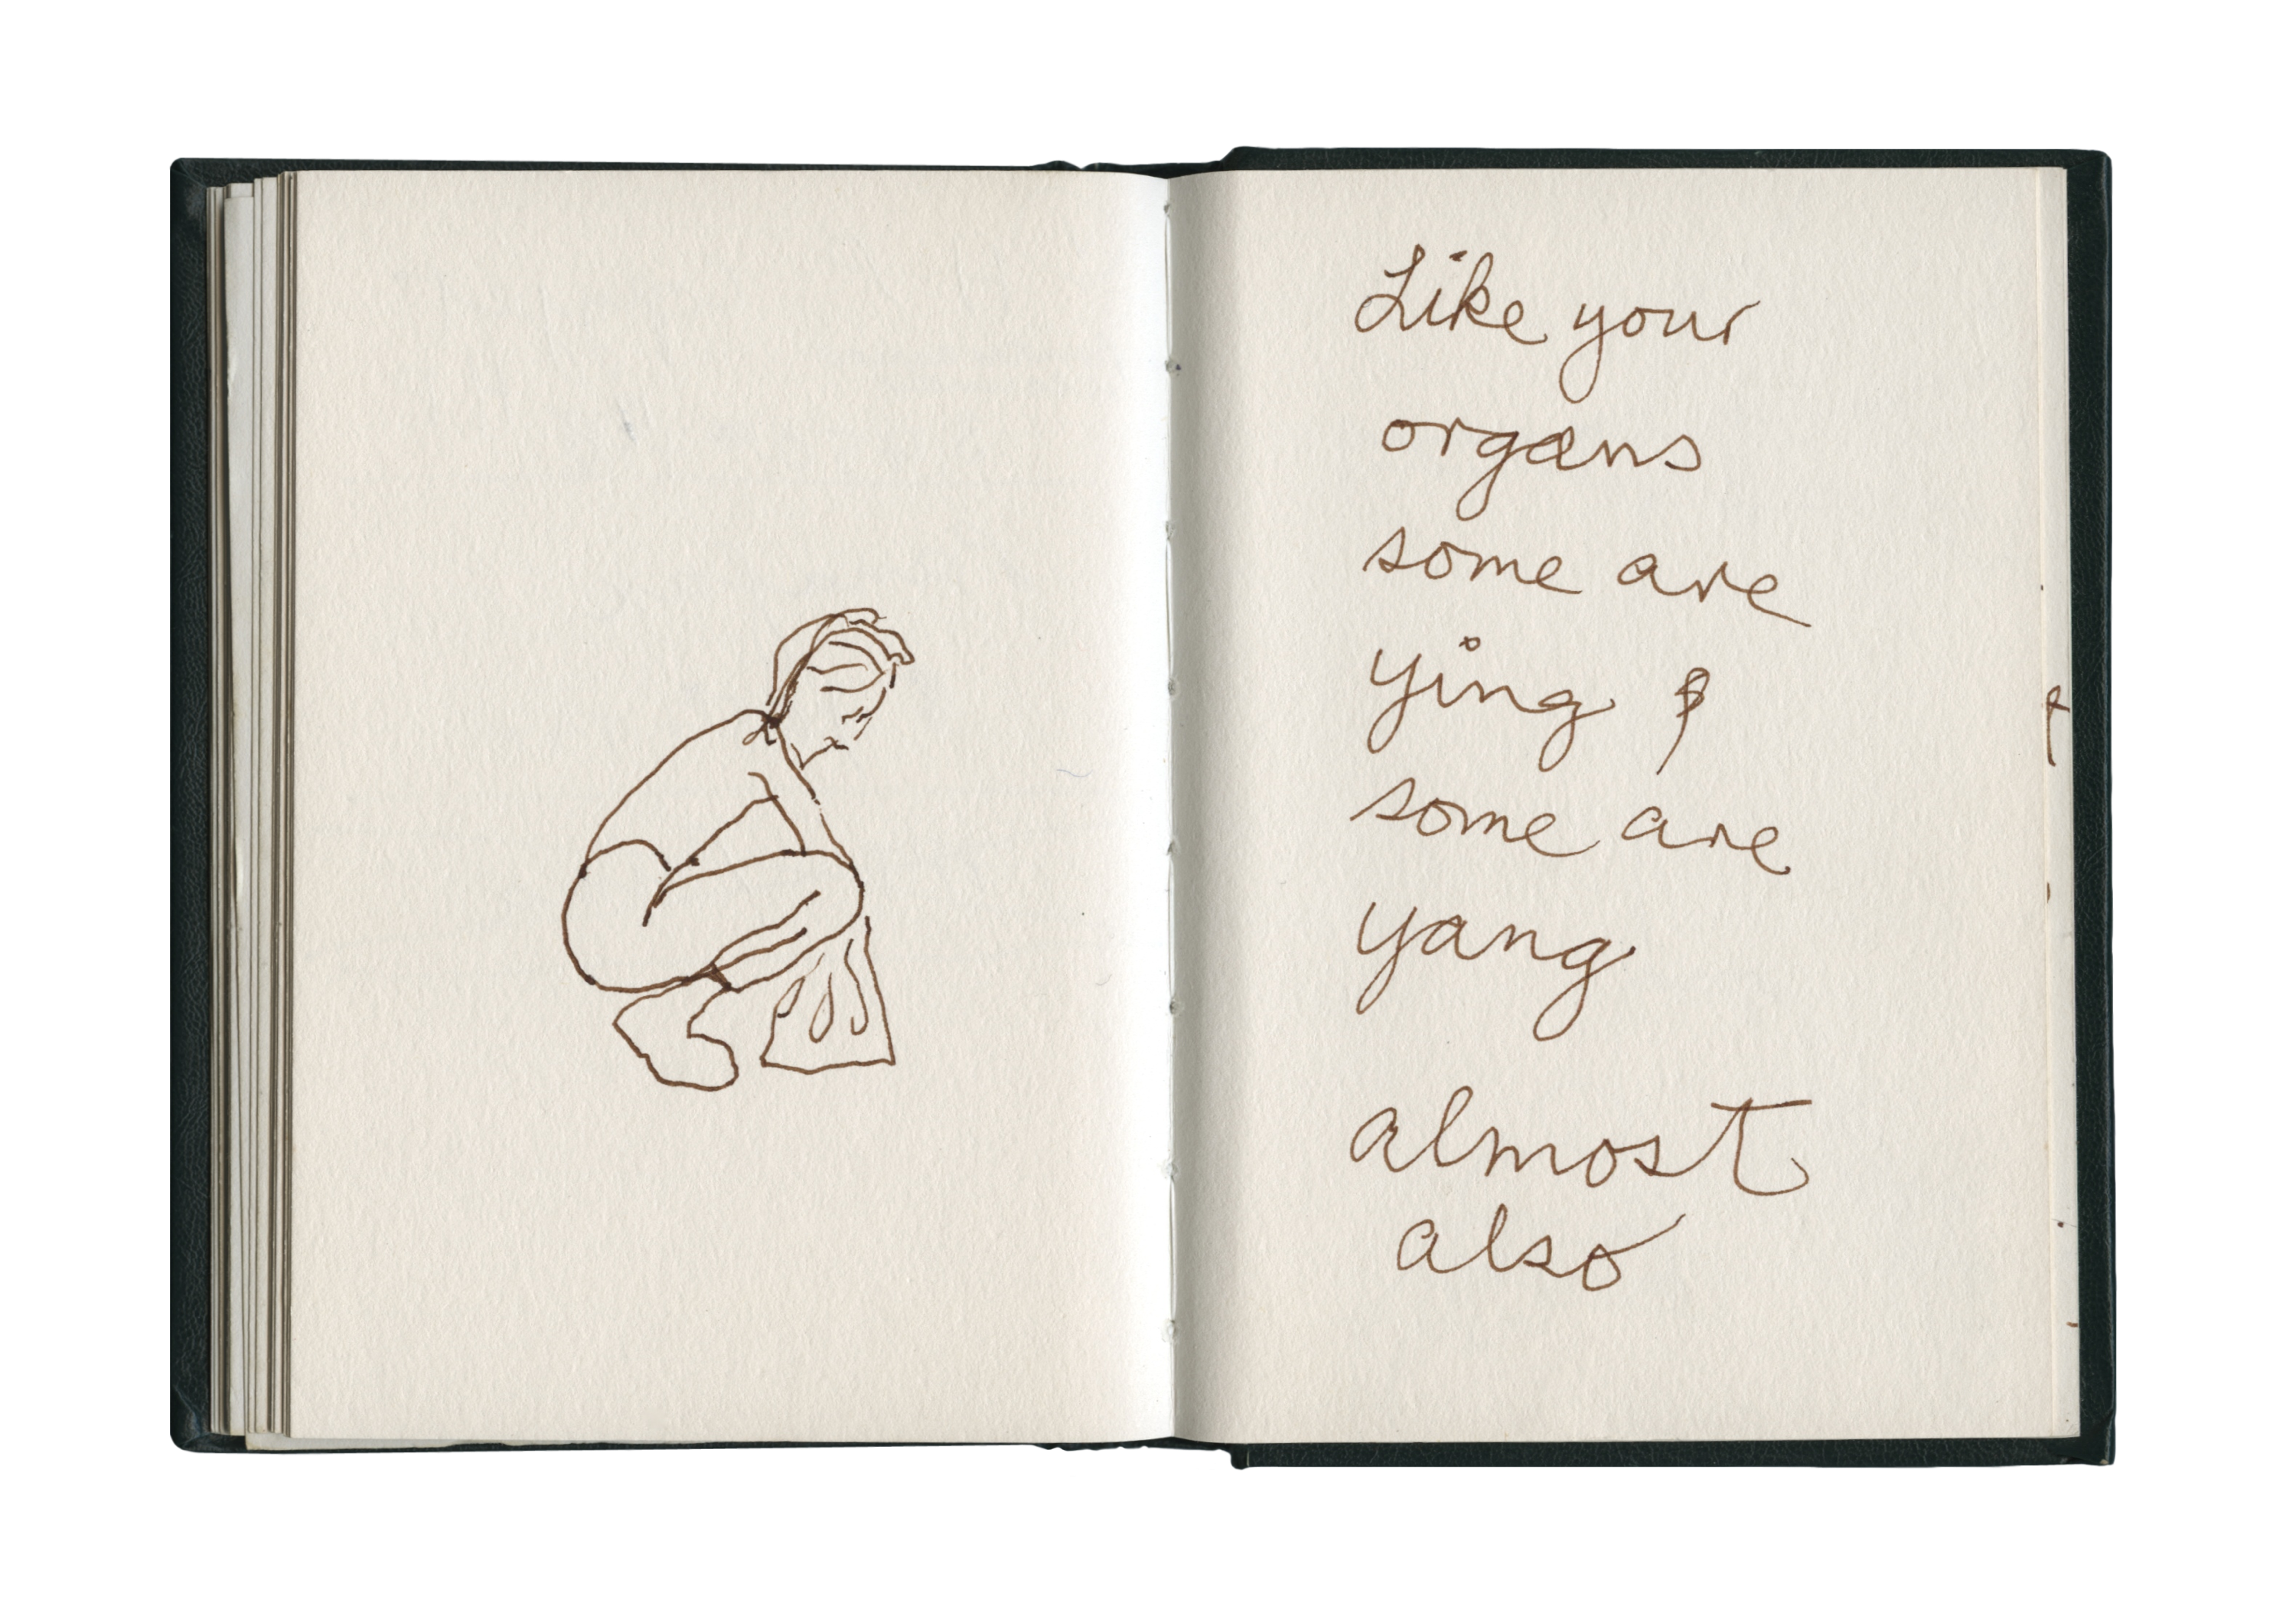 Like your
organs
some are
ying &
some are
yang
almost
also